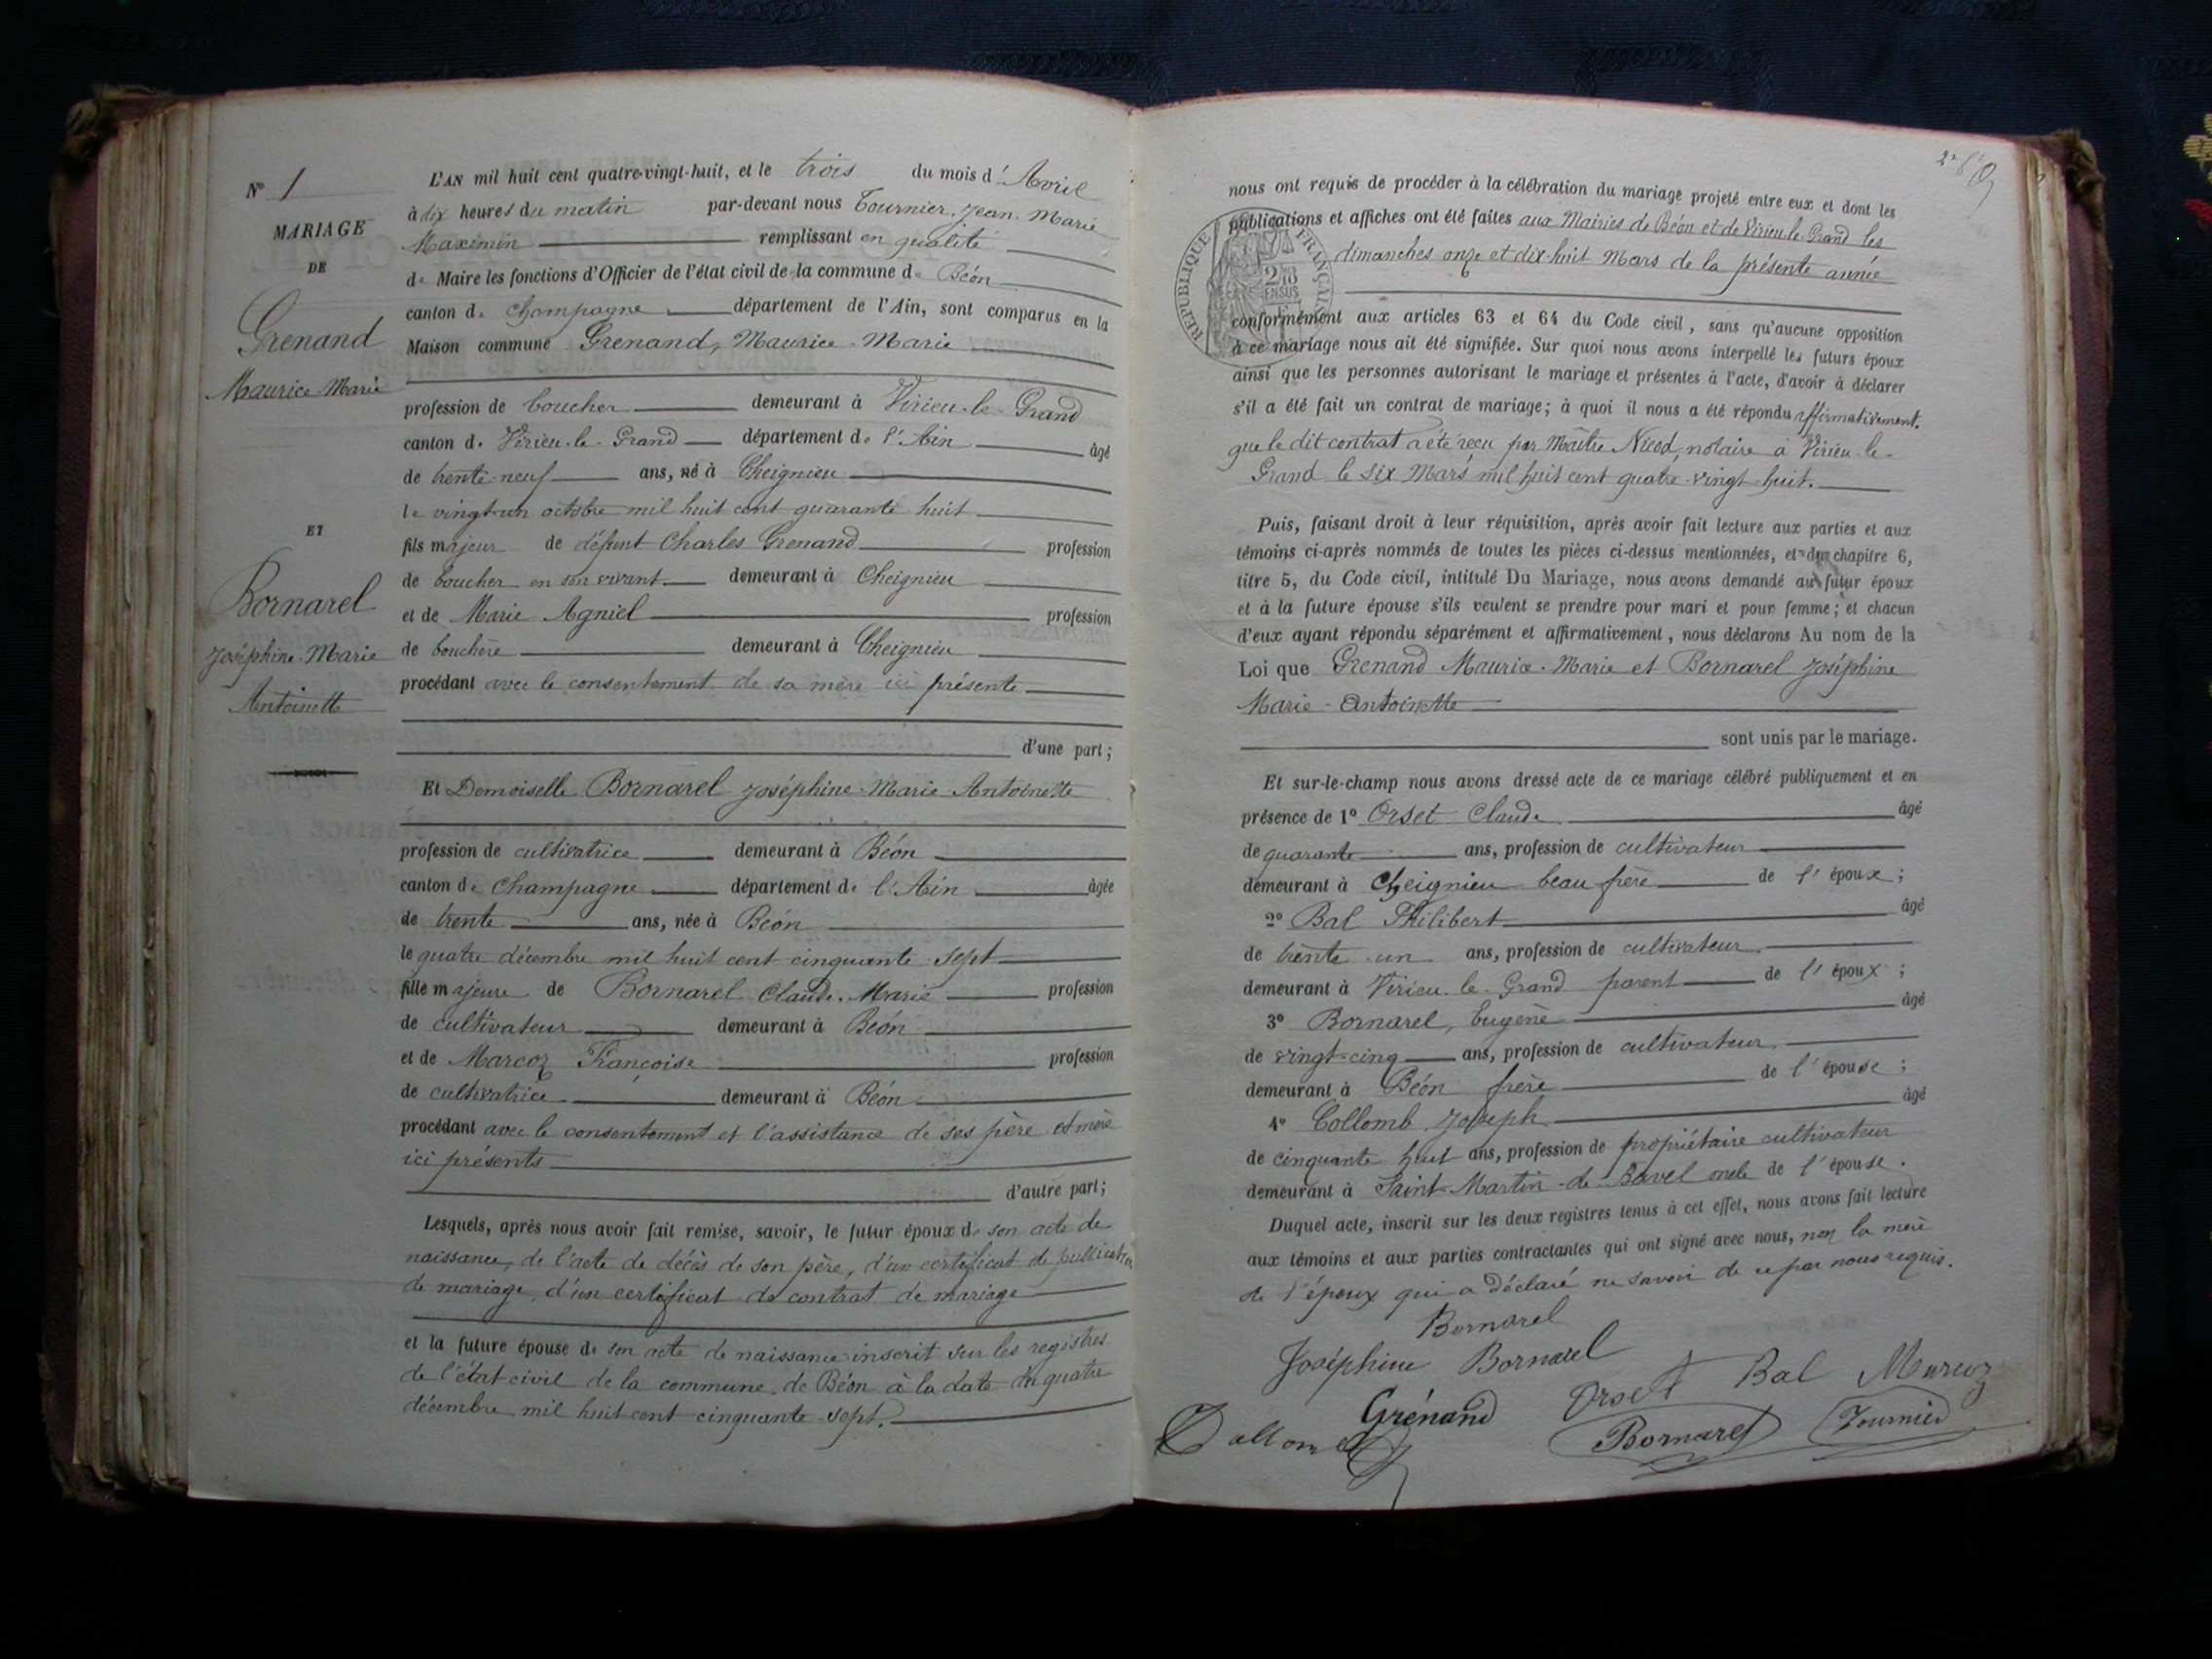 N° 1
MARIAGE
DE
Grenand
Maurice-Marie
ET
Bornarel
Joséphine-Marie
Antoinette
L'AN mil huit cent quatre-vingt-huit, et le trois du mois d'Avril
à dix heures du matin par-devant nous Tournier, Jean-Marie
Maximin remplissant en qualité
de Maire les fonctions d'Officier de l'état civil de la commune de Béon
canton de Champagne département de l'Ain, sont comparus en la
Maison commune Grenand, Maurice-Marie
profession de boucher demeurant à Virieu-le-Grand
canton de Virieu-le-Grand département de l'Ain âgé
de trente-neuf ans, né à Cheignieu
le vingt-un octobre mil huit cent quarante huit
fils majeur de défunt Charles Grenand profession
de boucher en son vivant demeurant à Cheignieu
et de Marie Agniel profession
de bouchère demeurant à Cheignieu
procédant avec le consentement de sa mère ici présente
d'une part;
Et Demoiselle Bornarel Joséphine-Marie-Antoinette
profession de cultivatrice demeurant à Béon
canton de Champagne département de l'Ain âgée
de trente ans, née à Béon
le quatre décembre mil huit cent cinquante-sept
fille majeure de Bornarel Claude-Marie profession
de cultivateur demeurant à Béon
et de Marcoz Françoise profession
de cultivatrice demeurant à Béon
procédant avec le consentement et l'assistance de ses père et mère
ici présents
d'autre part;
Lesquels, après nous avoir fait remise, savoir, le futur époux de son acte de
naissance, de l'acte de décès de son père, d'un certificat de publication
de mariage, d'un certificat de contrat de mariage
et la future épouse de son acte de naissance inscrit sur les registres
de l'état civil de la commune de Béon à la date du quatre
décembre mil huit cent cinquante-sept.
nous ont requis de procéder à la célébration du mariage projeté entre eux et dont les
publications et affiches ont été faites aux Mairies de Béon et de Virieu-le-Grand les
dimanches onze et dix-huit Mars de la présente année
RÉPUBLIQUE FRANÇAISE
conformément aux articles 63 et 64 du Code civil, sans qu'aucune opposition
à ce mariage nous ait été signifiée. Sur quoi nous avons interpellé les futurs époux
ainsi que les personnes autorisant le mariage et présentes à l'acte, d'avoir à déclarer
s'il a été fait un contrat de mariage; à quoi il nous a été répondu affirmativement.
que le dit contrat a été reçu par Maître Nicod, notaire à Virieu-le-
Grand le six Mars mil huit cent quatre-vingt-huit.
Puis, faisant droit à leur réquisition, après avoir fait lecture aux parties et aux
témoins ci-après nommés de toutes les pièces ci-dessus mentionnées, et du chapitre 6,
titre 5, du Code civil, intitulé Du Mariage, nous avons demandé au futur époux
et à la future épouse s'ils veulent se prendre pour mari et pour femme; et chacun
d'eux ayant répondu séparément et affirmativement, nous déclarons Au nom de la
Loi que Grenand Maurice-Marie et Bornarel Joséphine
Marie-Antoinette
sont unis par le mariage.
Et sur-le-champ nous avons dressé acte de ce mariage célébré publiquement et en
présence de 1° Orset Claude âgé
de quarante ans, profession de cultivateur
demeurant à Cheignieu beau frère de l'époux;
2° Bal Philibert âgé
de trente-un ans, profession de cultivateur
demeurant à Virieu-le-Grand parent de l'époux;
3° Bornarel, Eugène âgé
de vingt-cinq ans, profession de cultivateur
demeurant à Béon frère de l'épouse;
4° Collomb Joseph âgé
de cinquante huit ans, profession de propriétaire cultivateur
demeurant à Saint-Martin-de-Bavel oncle de l'épouse.
Duquel acte, inscrit sur les deux registres tenus à cet effet, nous avons fait lecture
aux témoins et aux parties contractantes qui ont signé avec nous, non la mère
de l'époux qui a déclaré ne savoir de ce par nous requis.
Bornarel
Joséphine Bornarel
Orset Bal Marcoz
Grénand
Collomb
Bornarel Tournier